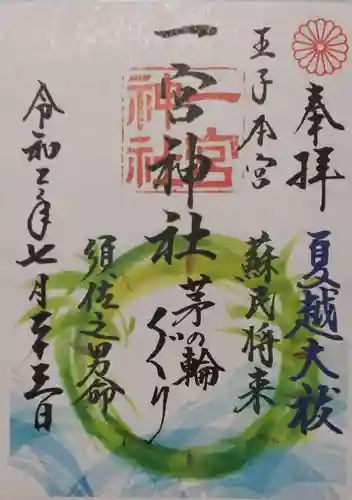 奉拝
夏越大祓
王子本宮
蘇民将来
一宮神社
茅の輪
くぐり
須佐之男命
令和二年七月二十三日
一宮
神社